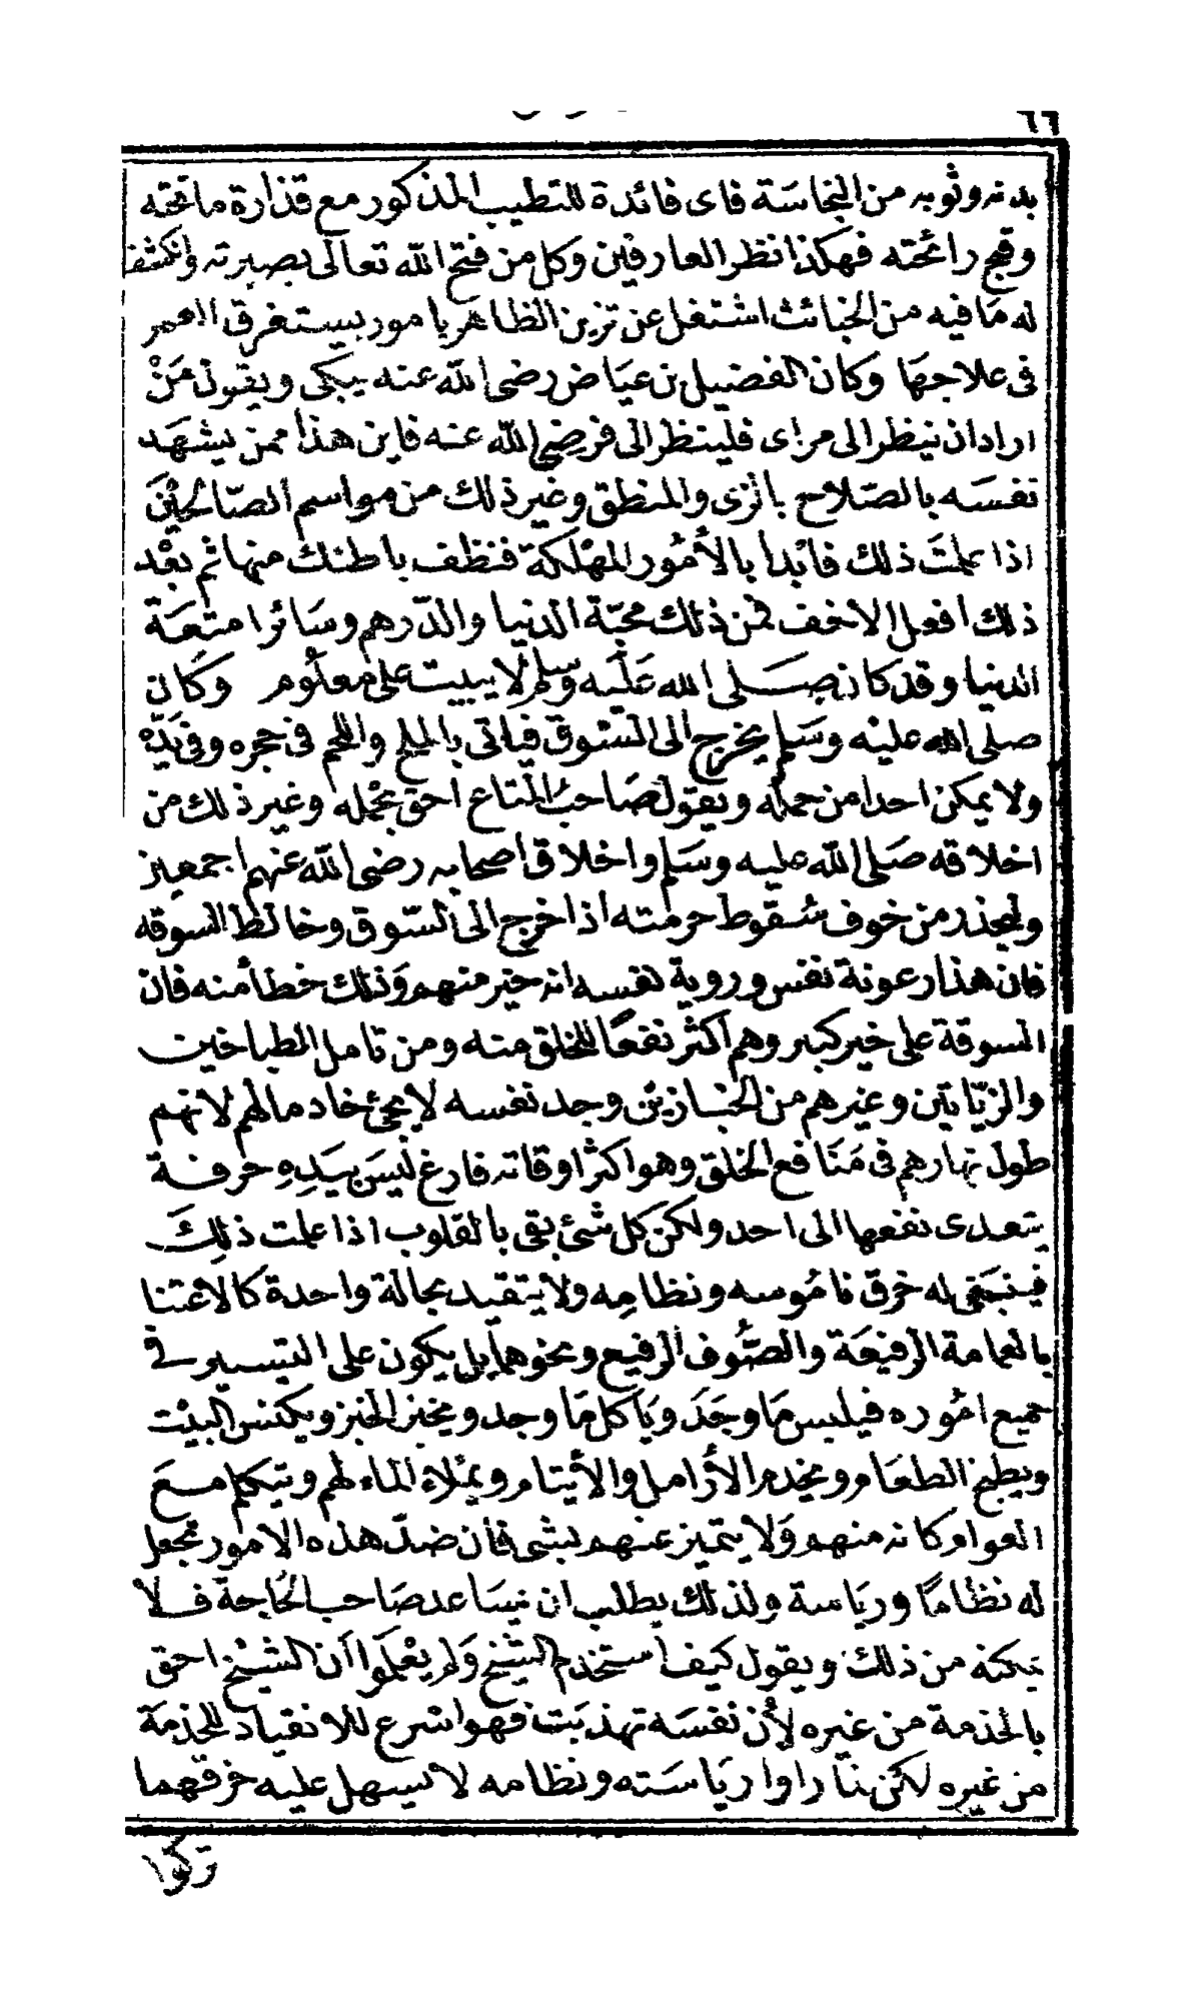 ٦٦
بدنه وثوبه من النجاسة فاى فائدة للتطيب المذكور مع قذارة ما تحته
وقبح رائحته فهكذا نظر العارفين وكل من فتح الله تعالى بصيرته وانكشف
له مَا فيه من الخبائث اشتغل عن تزين الظاهر بامور يستغرق العمر
فى علاجهَا وكان الفضيل بن عيَاض رضى الله عنه يبكى ويقول مَنْ
اراد ان ينظر الى مراى فلينظر الى فرضى الله عنه فاين هذا ممن يشهَد
نفسَه بالصّلاح بالزى والمنطق وغير ذلك من مواسم الصّالحِيْنَ
اذا علمتَ ذلك فابْدأ بالأمُور المهْلكة فنظف باطنك منها ثم بعْد
ذلك افعل الاخف فمن ذلك محبّة الدنيا والدّرهم وسَائر امتعَة
الدنيا وقد كان صَلى الله عَليْه وسلم لا يبيت على معلُوم وكَان
صلى الله عليْه وسَلم يخرج الى السّوق فياتى بالملح واللحم فى حجره وفى يَدِه
ولا يمكن احدا من حمله ويقول صَاحبُ المتاع احق بحْمله وغير ذلك من
اخلاقه صَلى الله عليه وسَلم واخلاق اصحابه رضى الله عنهم اجمعين
وليحذر من خوف سُقوط حرمته اذا خرج الى السّوق وخالط السوقه
فان هذا رعونة نفس وروية نفسه انه خير منهم وَذلك خطأ منه فان
السوقة على خير كبير وهم أكثر نفعًا للخلق منه ومن تامل الطباخين
والزيّاتين وغيرهم من الخبازين وجد نفسه لا يجئ خادما لهم لانهم
طول نهارهم فى مَنَافع الخلق وهو اكثر اوقاته فارغ ليسَ بيَدِهِ حرفة
يتعدى نفعها الى احد ولكن كل شئ بقى بالقلوب اذا علمت ذلِكَ
فينبَغى له خرق نامُوسه ونظامِه ولا يتقيد بحالة واحدة كالاعتنا
بالعمامة الرفيعَة والصُّوف الرفيع ونحوهما بل يكون على التيسير فى
جميع امُوره فيلبس مَا وجَدَ ويَاكل مَا وجد ويخبز الخبز ويكنس البيْت
ويطبخ الطعَام ويخدم الأرامل والأيتام ويملاء الماء لهم ويتكلم مَعَ
العوام كانه منهم وَلا يتميز عنهم بشى فان ضدّ هذه الامور تجعل
له نظامًا وريَاسة ولذلك يطلب ان يسَاعد صَاحب الحَاجة فلا
يمكنه من ذلك ويقول كيف استخدم الشيخ وَلم يعْلمَوا أن الشيْخ احق
بالخدمة من غيره لأن نفسَه تهذبَت فهو اسْرع للانقياد للخذمَة
من غيره لكن لمّا راوا ريَاسَته ونظامه لا يسهل عليه خرقهما
تركوا